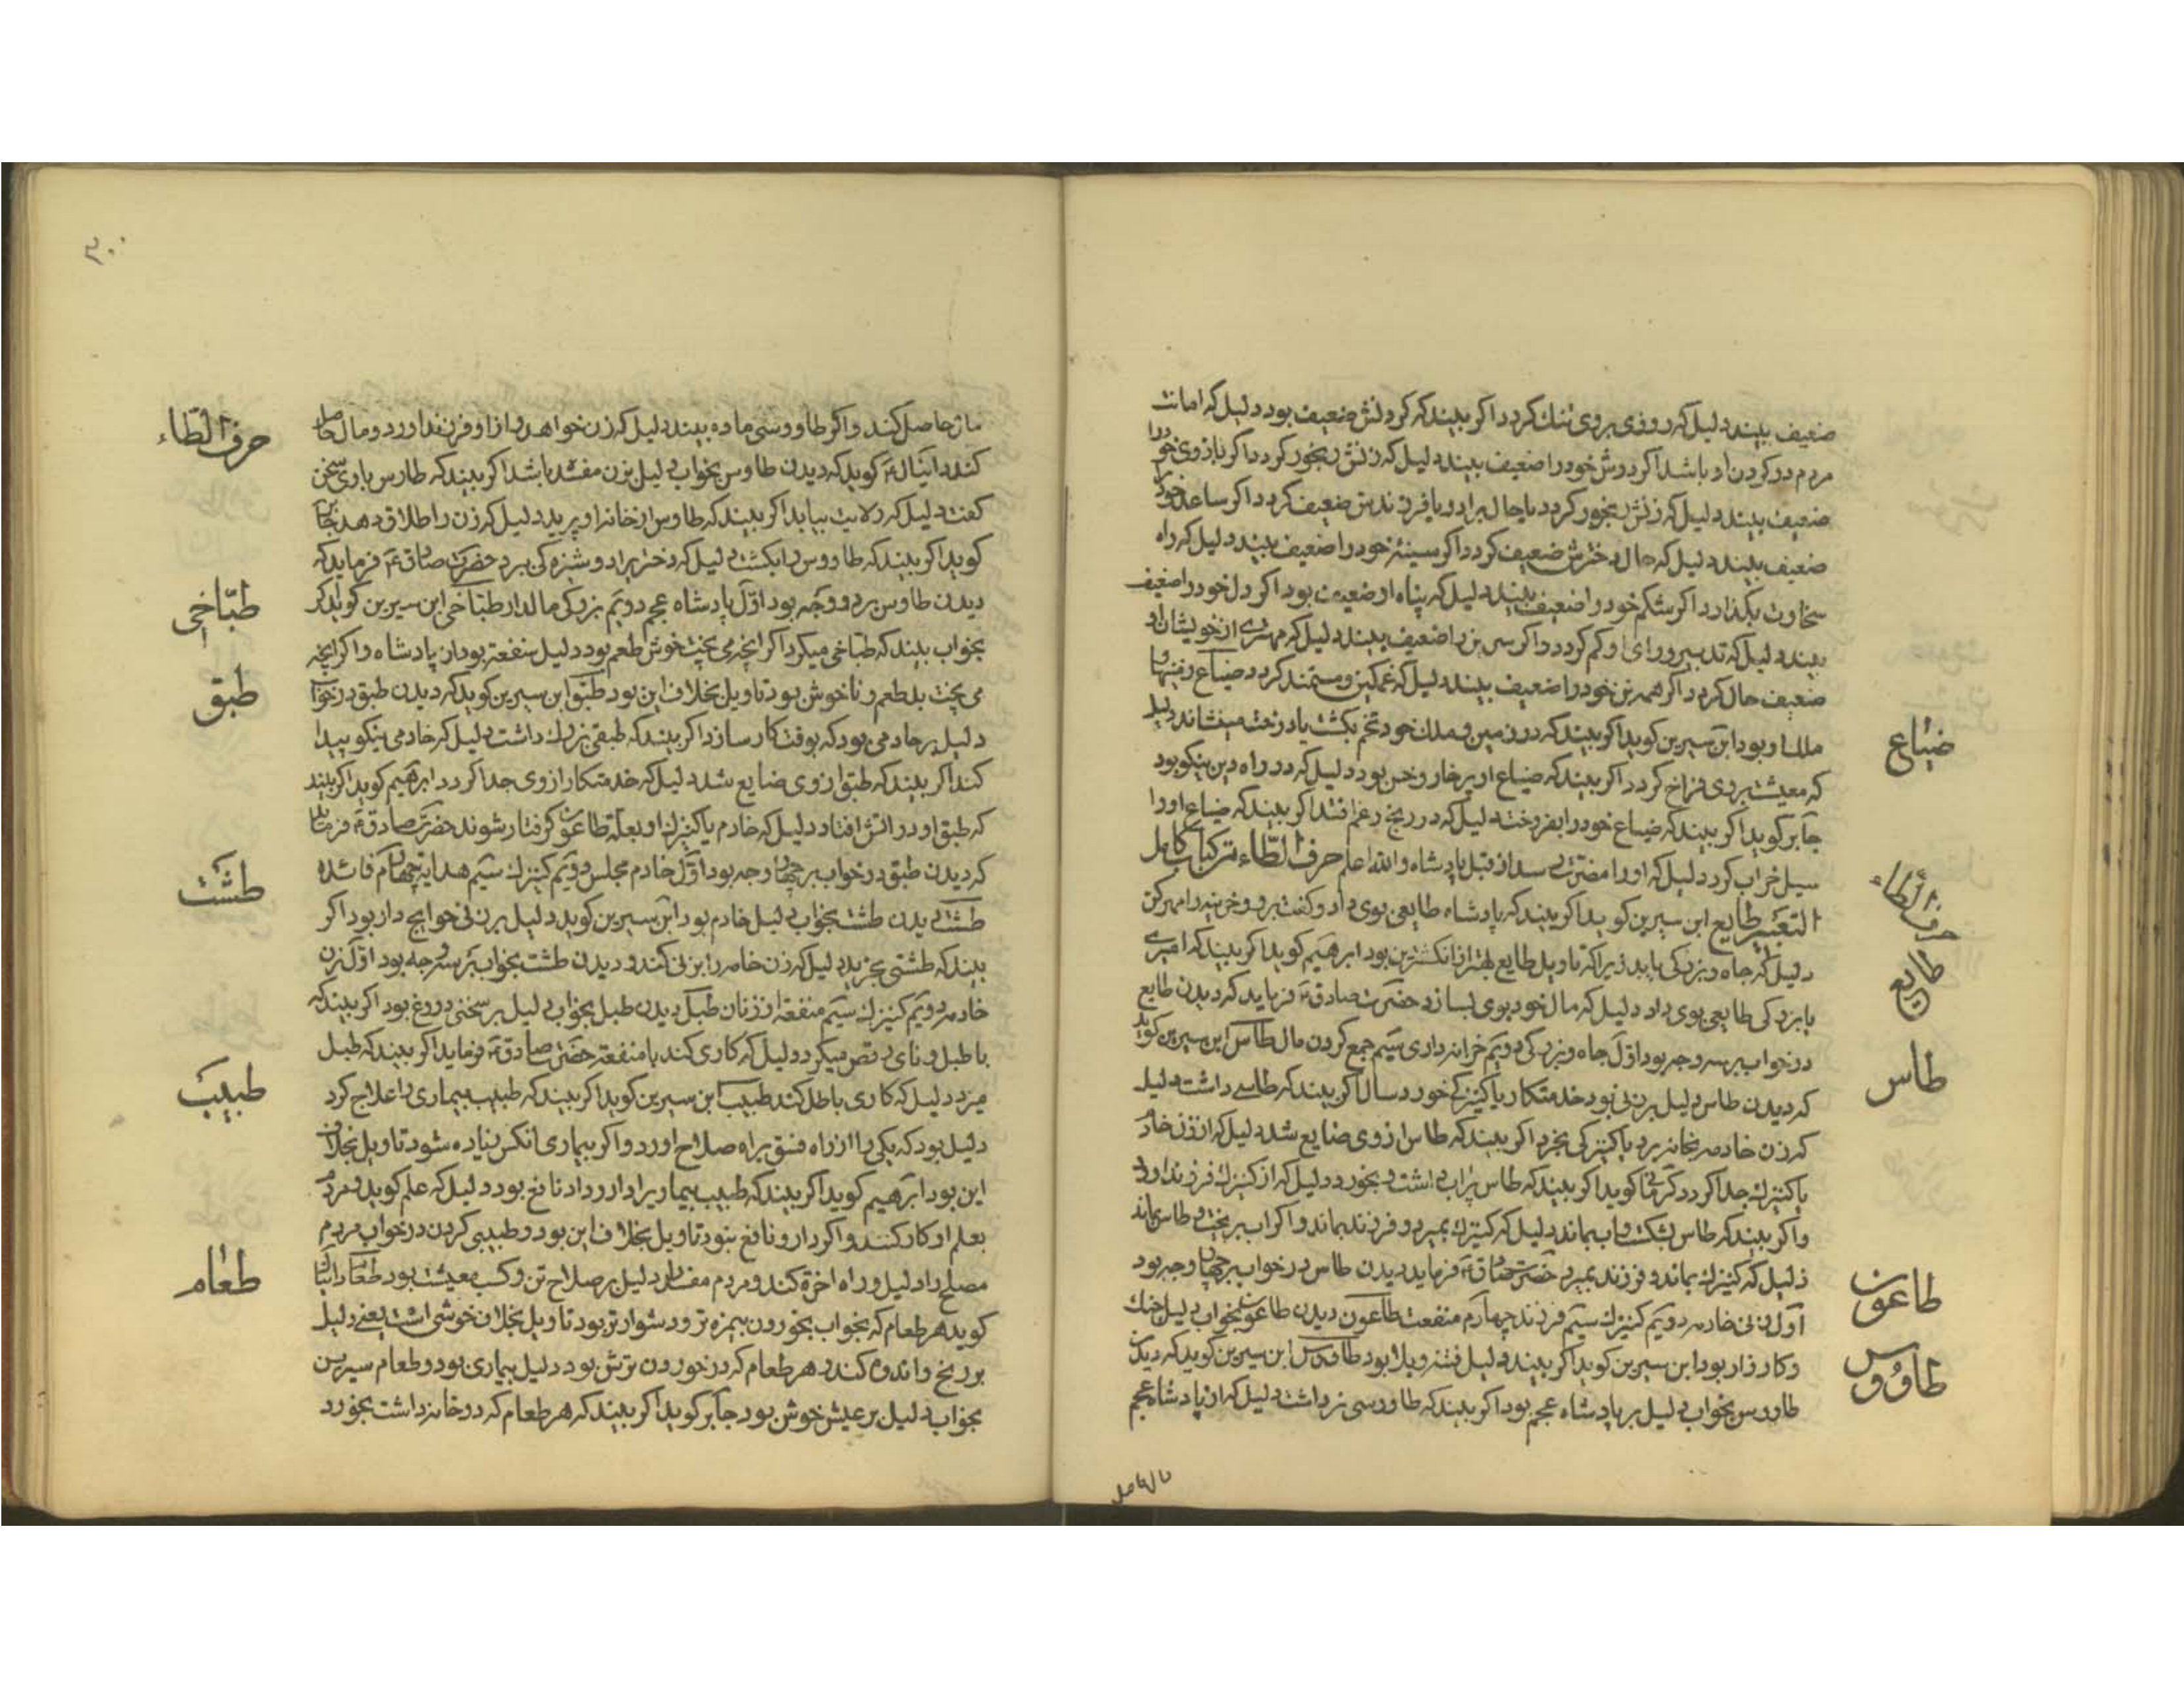 ضعیف بیند دلیل که روزی بروی تنک کردد اکر بیند که کردنش ضعیف بود دلیل که امانت
مردم در کردن او باشد اکر دوش خود را ضعیف بیند دلیل که زنش رنجور کردد اکر بازوی خود را
ضعیف بیند دلیل که زنش رنجور کردد یا حال برادر یا فرزندش ضعیف کردد اکر ساعد خود
ضعیف بیند دلیل که حال دخترش ضعیف کردد اکر سینهٔ خود را ضعیف بیند دلیل که راه
سخاوت بکذارد اکر شکم خود را ضعیف بیند دلیل که پناه او ضعیف بود اکر دل خود را ضعیف
بیند دلیل که تدبیر و رای او کم کردد و اکر سرین را ضعیف بیند دلیل که مهتری از خویشان او
ضعیف حال کردد اکر همه تن خود را ضعیف بیند دلیل که غمکین و مستمند کردد ضیاع زمینها
ملک او بود ابن سیرین کوید اکر بیند که در زمین و ملک خود تخم بکشت یا درخت مینشاند دلیل
که معیشت بروی فراخ کردد اکر بیند که ضیاع او پر خار و خس بود دلیل که در راه دین نیکو بود
جابر کوید اکر بیند که ضیاع خود را بفروخت دلیل که در رنج و غم افتد اکر بیند که ضیاع او را
سیل خراب کرد دلیل که او را مضرت رسد از قبل پادشاه والله اعلم حرف الطاء من کتاب کامل
التعبیر طایع ابن سیرین کوید اکر بیند که پادشاه طایعی بوی داد و کفت برو و خزینه را مهر کن
دلیل که جاه و بزرکی یابد زیرا که تاویل طایع بهتر از انکشترین بود ابرهیم کوید اکر بیند که امیری
یا بزرکی طایعی بوی داد دلیل که مال خود بوی بسازد حضرت صادق ع فرماید که دیدن طایع
در خواب بر سه وجه بود اول جاه و بزرکی دویم خزانه داری سیم جمع کردن مال طاس ابن سیرین کوید
که دیدن طاس دلیل بر زنی بود خدمتکار یا کنیزکی خورد سال اکر بیند که طاسی داشت دلیل
که زن خادمه بخانه برد یا کنیزکی بخرد اکر بیند که طاس از وی ضایع شد دلیل که از زن خادمه
یا کنیزک جدا کردد کرمانی کوید اکر بیند که طاس پر اب داشت و بخورد دلیل که از کنیزک فرزند اورد
و اکر بیند که طاس بشکست و اب بماند دلیل که کنیزک بمیرد و فرزند بماند و اکر اب بریخت و طاس بماند
دلیل که کنیزک بماند و فرزند بمیرد حضرت صادق ع فرماید دیدن طاس در خواب بر چهار وجه بود
اول زنی خادمه دویم کنیزک سیم فرزند چهارم منفعت طاعون دیدن طاعون بخواب دلیل جنک
و کارزار بود ابن سیرین کوید اکر بیند دلیل فتنه و بلا بود طاووس ابن سیرین کوید که دیدن
طاووس بخواب دلیل بر پادشاه عجم بود اکر بیند که طاووسی نر داشت دلیل که از پادشاه عجم
ضیاع
حرف الطاء
طایع
طاس
طاعون
طاووس
مال حاصل
۳۰۰
مال حاصل کند و اکر طاووسی ماده بیند دلیل که زن خواهد و از او فرزند اورد و مال حاصل
کند دانیال ع کوید که دیدن طاوس بخواب دلیل بزن مفسد باشد اکر بیند که طاوس با وی سخن
کفت دلیل که ولایت بیابد اکر بیند که طاوس از خانه او پرید دلیل که زن را طلاق دهد جابر
کوید اکر بیند که طاووس را بکشت دلیل که دختر برادر دوشیزه کی ببرد حضرت صادق ع فرماید که
دیدن طاوس بر دو وجه بود اول پادشاه عجم دویم بزرکی مالدار طباخی ابن سیرین کوید اکر
بخواب بیند که طباخی میکرد اکر انچه می پخت خوش طعم بود دلیل منفعة بود از پادشاه و اکر انچه
می پخت بد طعم و ناخوش بود تاویل بخلاف این بود طبق ابن سیرین کوید که دیدن طبق در خواب
دلیل بر خادمی بود که بوقت کار سازد اکر بیند که طبقی بزرک داشت دلیل که خادمی نیکو پیدا
کند اکر بیند که طبق از وی ضایع شد دلیل که خدمتکار از وی جدا کردد ابرهیم کوید اکر بیند
که طبق او در اتش افتاد دلیل که خادم یا کنیزک او بعلة طاعون کرفتار شوند حضرت صادق ع فرماید
که دیدن طبق در خواب بر چهار وجه بود اول خادم مجلس دویم کنیزک سیم هدایه چهارم فائده
طشت دیدن طشت بخواب دلیل خادم بود ابن سیرین کوید دلیل بر زنی حوایج دار بود اکر
بیند که طشتی بخرید دلیل که زن خادمه را بزنی کند و دیدن طشت بخواب بر سه وجه بود اول زن
خادمه دویم کنیزک سیم منفعة از زنان طبل دیدن طبل بخواب دلیل بر سخنی دروغ بود اکر بیند که
با طبل و نای رقص میکرد دلیل که کاری کند با منفعة حضرت صادق ع فرماید اکر بیند که طبل
میزد دلیل که کاری باطل کند طبیب ابن سیرین کوید اکر بیند که طبیب بیماری را علاج کرد
دلیل بود که یکی را از راه فسق براه صلاح اورد و اکر بیماری انکس زیاده شود تاویل بخلاف
این بود ابرهیم کوید اکر بیند که طبیب بیمار را دارو داد نافع بود دلیل که علم کوید و مردم
بعلم او کار کنند و اکر دارو نافع نبود تاویل بخلاف این بود و طبیبی کردن در خواب مردم
مصلح را دلیل و راه اخرة کند و مردم مفسد را دلیل بر صلاح تن و کسب معیشت بود طعام دانیال
کوید هر طعام که بخواب بخورون بیمزه تر و دشوار تر بود تاویل بخلاف خوشی است یعنی دلیل
بر رنج و اندوه کند و هر طعام که در خوردن ترش بود دلیل بیماری بود و طعام سیرین
بخواب دلیل بر عیش خوش بود جابر کوید اکر بیند که هر طعام که در خانه داشت بخورد
حرف الطاء
طباخی
طبق
طشت
طبیب
طعام